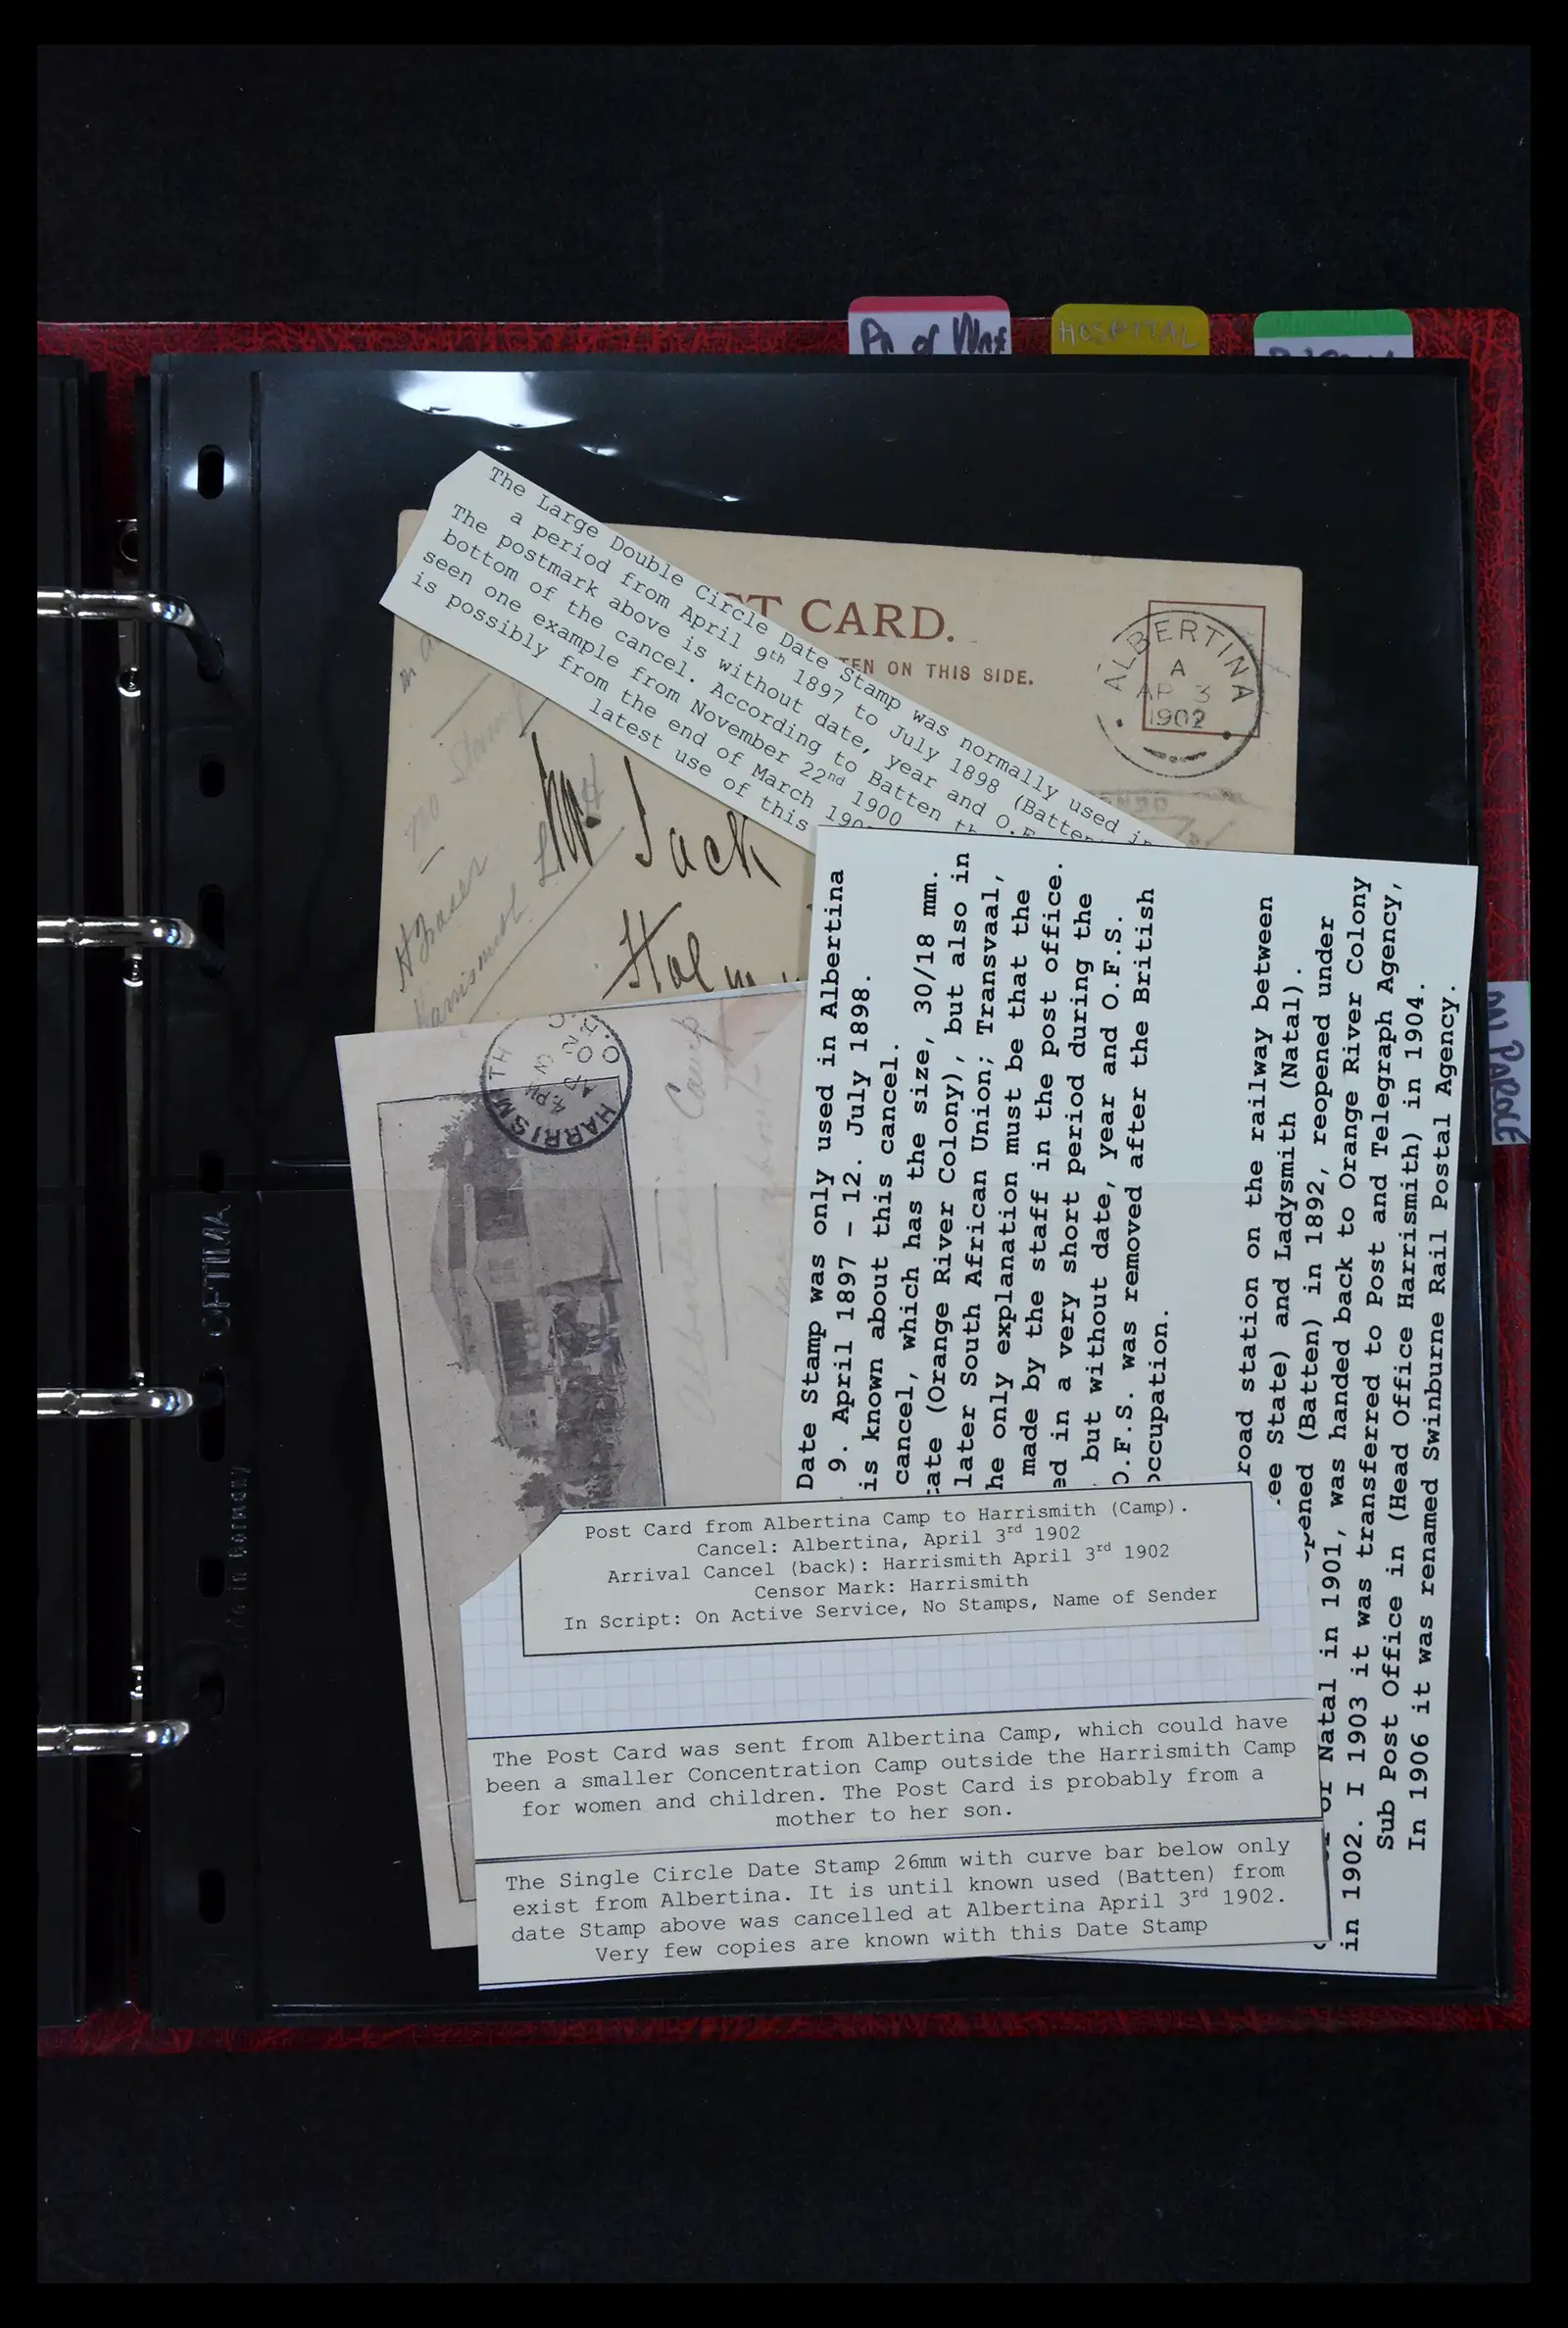 HOSPITAL
ON PAROLE
The Large Double Circle Date Stamp was normally used in
a period from April 9th 1897 to July 1898 (Batten
The postmark above is without date, year and O.F
bottom of the cancel. According to Batten th
seen one example from November 22nd 1900
is possibly from the end of March 190
latest use of this
ST CARD.
TEN ON THIS SIDE.
ALBERTINA
A
AP 3
1902
no Stamps
H Fraser
Harrismith
Mr Jack
Holm
HARRISMITH
O.R.C.
4.PM
Camp
Date Stamp was only used in Albertina
9. April 1897 - 12. July 1898.
is known about this cancel.
cancel, which has the size, 30/18 mm.
ate (Orange River Colony), but also in
later South African Union; Transvaal,
he only explanation must be that the
made by the staff in the post office.
ed in a very short period during the
but without date, year and O.F.S.
O.F.S. was removed after the British
occupation.
road station on the railway between
ee State) and Ladysmith (Natal).
pened (Batten) in 1892, reopened under
of Natal in 1901, was handed back to Orange River Colony
in 1902. I 1903 it was transferred to Post and Telegraph Agency,
Sub Post Office in (Head Office Harrismith) in 1904.
In 1906 it was renamed Swinburne Rail Postal Agency.
Post Card from Albertina Camp to Harrismith (Camp).
Cancel: Albertina, April 3rd 1902
Arrival Cancel (back): Harrismith April 3rd 1902
Censor Mark: Harrismith
In Script: On Active Service, No Stamps, Name of Sender
The Post Card was sent from Albertina Camp, which could have
been a smaller Concentration Camp outside the Harrismith Camp
for women and children. The Post Card is probably from a
mother to her son.
The Single Circle Date Stamp 26mm with curve bar below only
exist from Albertina. It is until known used (Batten) from
date Stamp above was cancelled at Albertina April 3rd 1902.
Very few copies are known with this Date Stamp
OPTIMA
Made in Germany